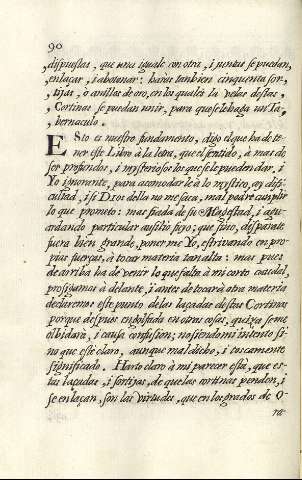 90
dispuestas, que una iguale con otra, i juntas se puedan,
enlaçar, i abotonar: haràs tanbien cinquenta sor,
tijas, ò anillas de oro, en los quales la velas destas,
Cortinas se puedan unir, para que se le haga un Ta,
bernaculo.
ESto es nuestro fundamento, digo el que ha de te-
ner este Libro à la letra, que el sentido, à mas de
ser profundos, i mysteriosos los que se le pueden dar, i
Yo ignorante, para acomodarle à lo mystico, ay difi-
cultad, i si DIOS della no me saca, mal podrè cumplir
lo que prometo: mas fiada de su Magestad, i agu-
ardando particular auxilio suyo; que sino, disparate
fuera bien grande, ponerme Yo, estrivando en pro-
pias fuerças, à tocar materia tan alta: mas pues
de arriba ha de venir lo que falta à mi corto caudal,
prosigamos à delante, i antes de tocar à otra materia
declaremos este punto de las laçadas destas Cortinas
porque despues engolfada en otras cosas, quizà se me
olbidarà, i causa confusion; no siendo mi intento si-
no que estè claro, aunque mal dicho, i toscamente
significado. Harto claro à mi parecer està, que es-
tas laçadas, i sortijas, de que las cortinas penden, i
se enlaçan, son las virtudes, que en los grados de O-
ra